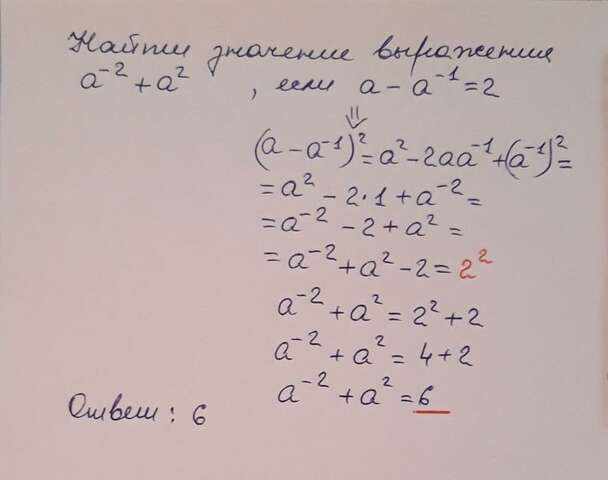 Найти значение выражения
a⁻² + a² , если a - a⁻¹ = 2
⇓
(a - a⁻¹)² = a² - 2aa⁻¹ + (a⁻¹)² =
= a² - 2·1 + a⁻² =
= a⁻² - 2 + a² =
= a⁻² + a² - 2 = 2²
a⁻² + a² = 2² + 2
a⁻² + a² = 4 + 2
a⁻² + a² = 6
Ответ: 6